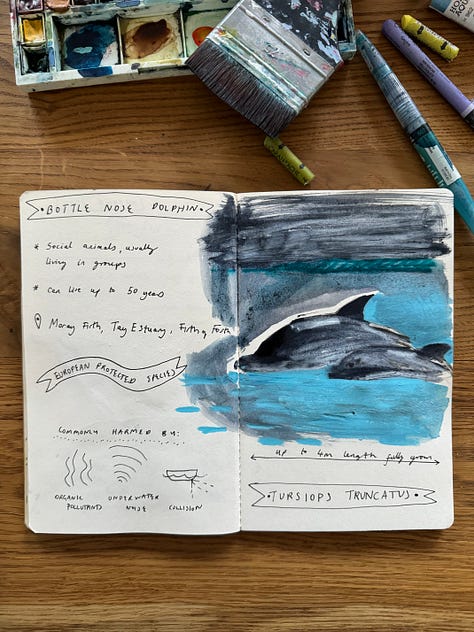 • BOTTLE NOSE DOLPHIN •
* Social animals, usually
living in groups
* Can live up to 50 years
Moray Firth, Tay Estuary, Firth of Forth
EUROPEAN PROTECTED SPECIES
COMMONLY HARMED BY:
ORGANIC
POLLUTANTS
UNDERWATER
NOISE
COLLISION
up to 4m length fully grown
• TURSIOPS TRUNCATUS •